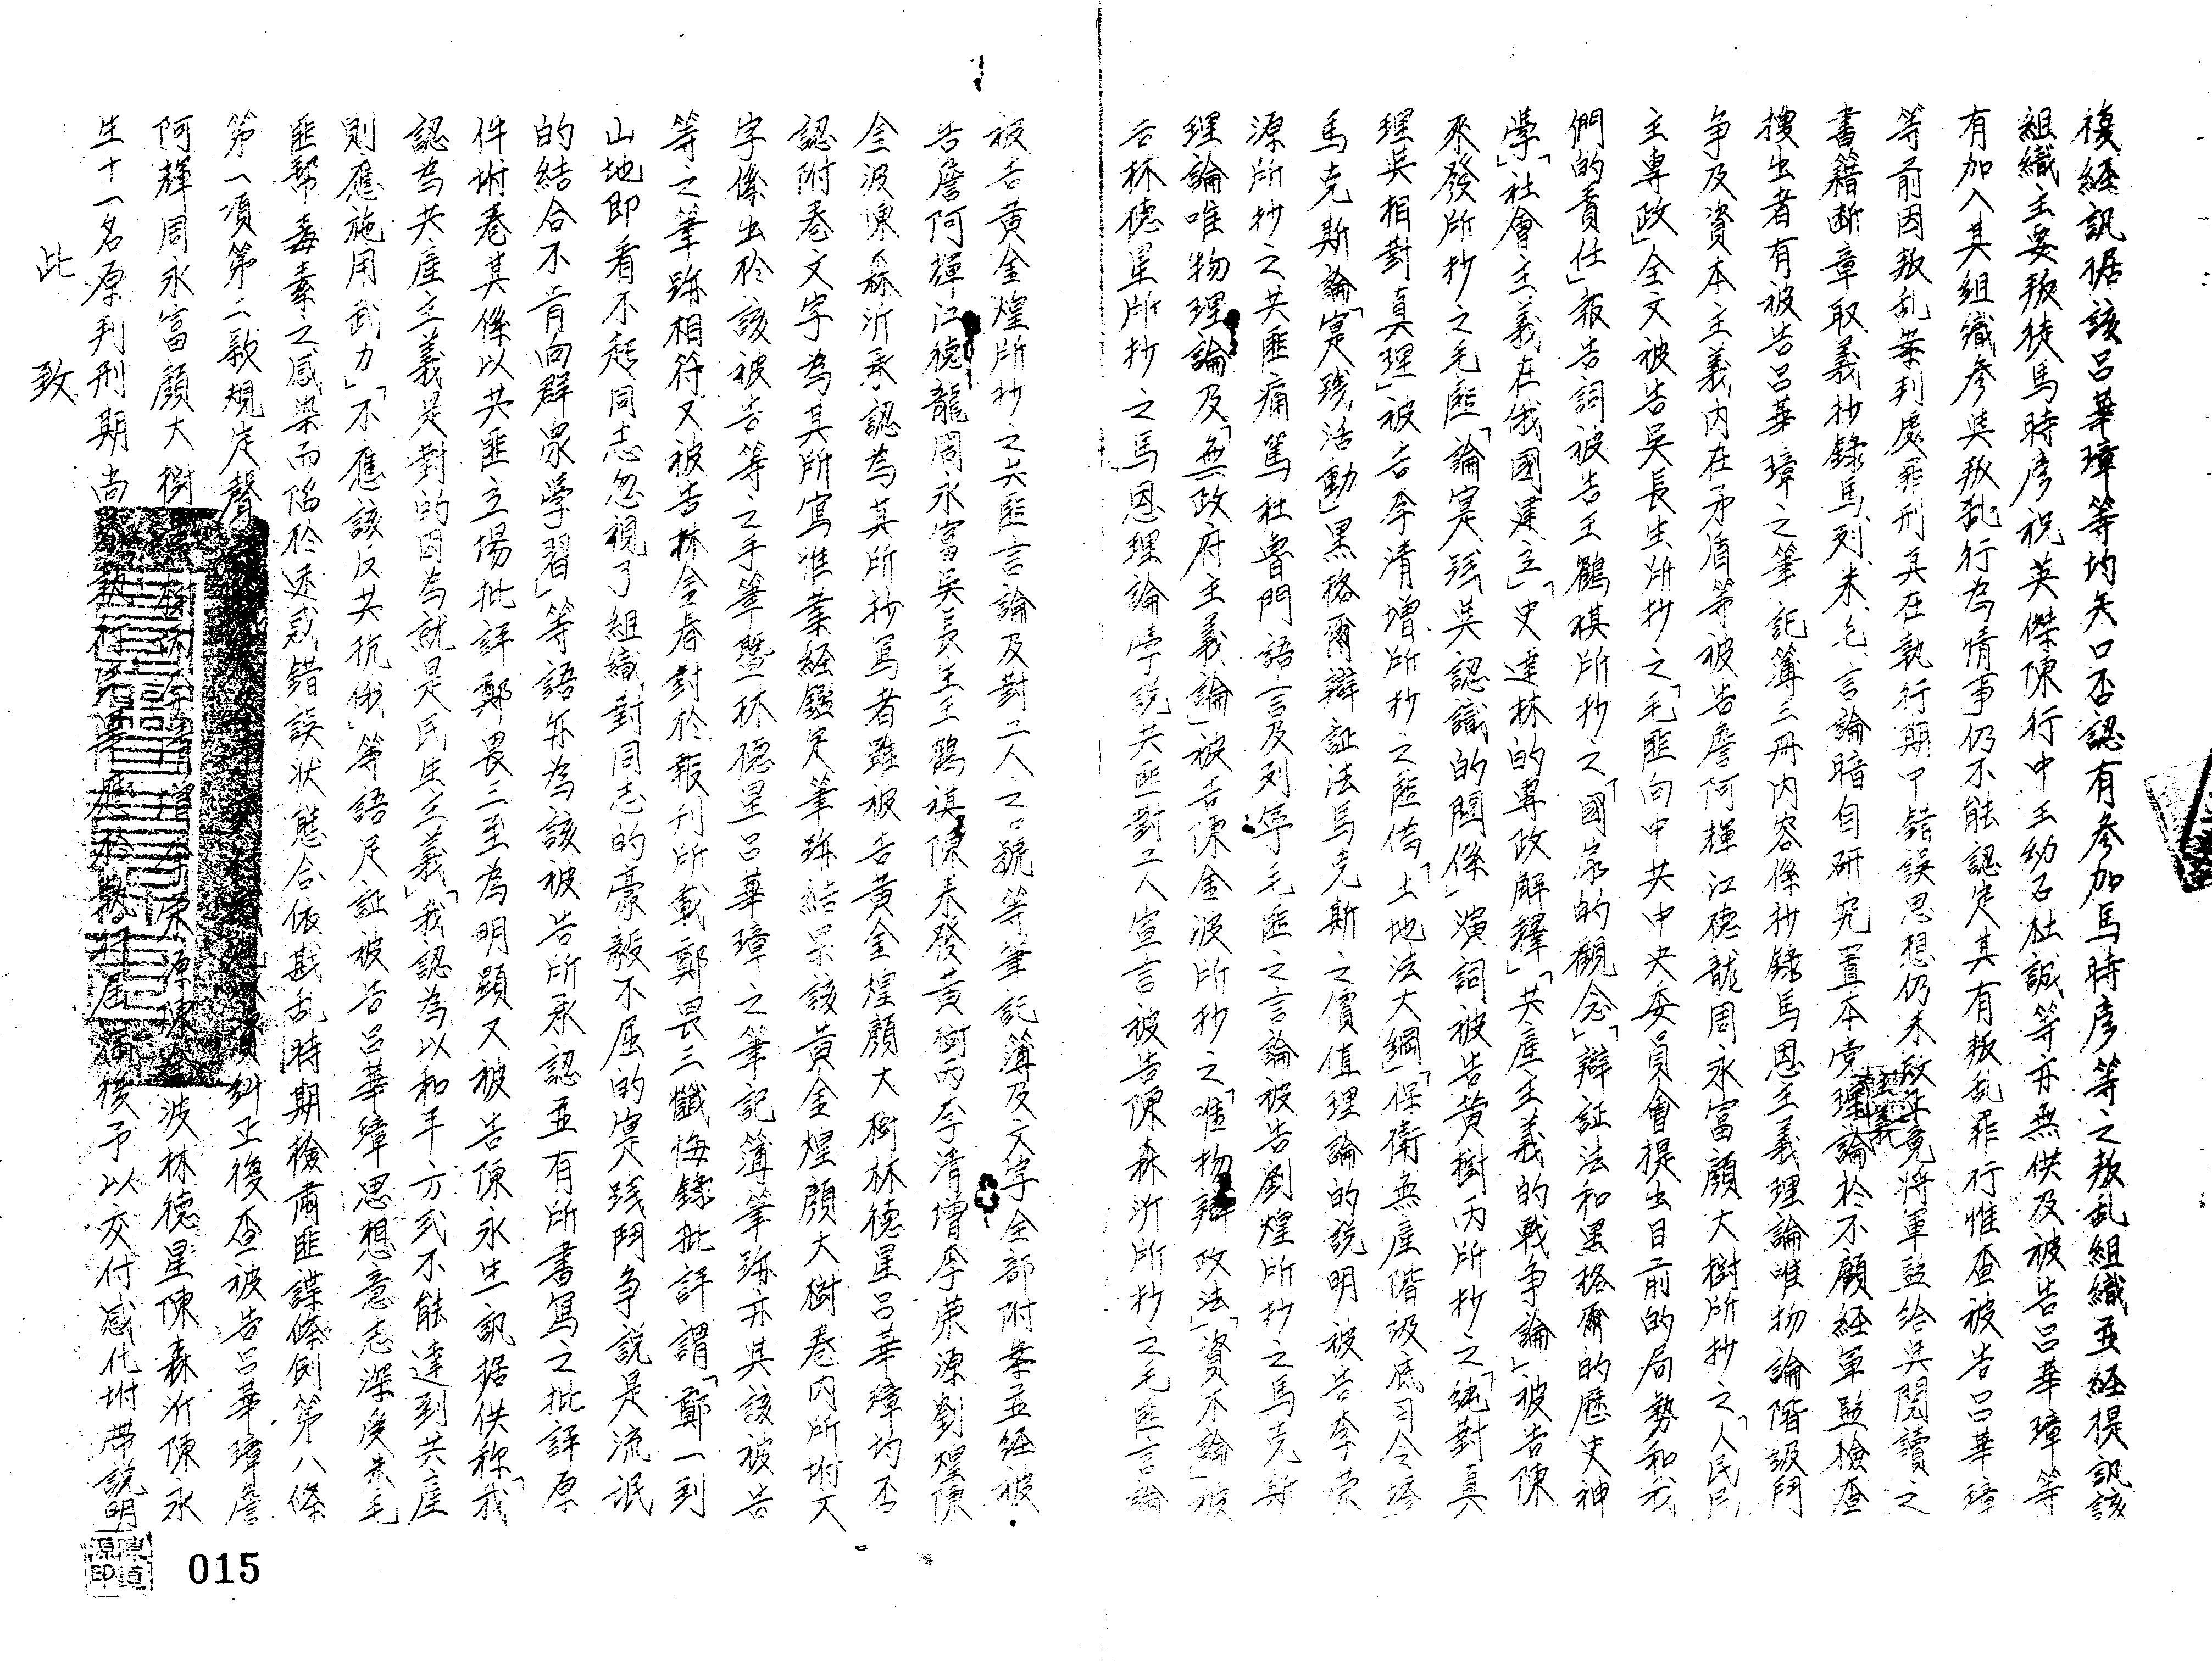 複經訊据該呂華璋等均矢口否認有參加馬時彥等之叛乱組織並経提訊該
組織主要叛徒馬時彥祝英傑陳行中王幼石杜誠等亦無供及被告呂華璋等
有加入其組織參與叛乱行為情事仍不能認定其有叛乱罪行惟查被告呂華璋
等前因叛乱案判處罪刑其在執行期中錯誤思想仍未改正竟將軍監給與閱讀之
書籍断章取義抄錄馬列、朱、毛、言論暗自研究置本党理論於不顧経軍監檢查
主義
搜出者有被告呂華璋之筆記簿三冊內容係抄錄馬恩主義理論唯物論階級鬥
争及資本主義内在矛盾等被告詹阿輝江德龍周永富顏大樹所抄之「人民民
主專政」全文被告吳長生所抄之「毛匪向中共中央委員會提出目前的局勢和我
們的責任」報告詞被告王鶴祺所抄之「國家的觀念」「辯証法和黑格爾的歷史神
學」「社會主義在俄國建立」「史達林的專政解釋」「共產主義的戰争論」被告陳
來發所抄之毛匪「論實踐與認識的関係」演詞被告黄樹丙所抄之「絶對真
理與相對真理」被告李清增所抄之匪偽「土地法大綱」「保衛無產階級底司令塔
馬克斯論」「實踐活動」黑格爾辯証法馬克斯之價值理論的説明被告李荣
源所抄之共匪痛罵杜魯門語言及列寧毛匪之言論被告劉煌所抄之馬克斯
理論唯物理論及「無政府主義論」被告陳金波所抄之「唯物辯政法」「資不論」被
告林德星所抄之馬恩理論學説共匪對工人宣言被告陳森沂所抄之毛匪言論
被告黄金煌所抄之共匪言論及對工人之口號等筆記簿及文字全部附案並経被
告詹阿輝江德龍周永富吳長生王鶴祺陳来發黄樹丙李清增李荣源劉煌陳
金波陳森沂承認為其所抄写者雖被告黄金煌顏大樹林德星呂華璋均否
認附卷文字為其所寫惟業経鑑定筆跡結果該黄金煌顏大樹卷内所附文
字係出於該被告等之手筆暨林德星呂華璋之筆記簿筆跡亦與該被告
等之筆跡相符又被告林金春對於報刊所載鄭畏三懺悔錄批評謂「鄭一到
山地即看不起同志忽視了組織對同志的豪毅不屈的實踐鬥争説是流氓
的結合不肯向群眾學習」等語亦為該被告所承認並有所書寫之批評原
件附卷其係以共匪立場批評鄭畏三至為明顯又被告陳永生訊据供称「我
認為共產主義是對的因為就是民生主義」「我認為以和平方式不能達到共產
則應施用武力」「不應該反共抗俄」等語足証被告呂華璋思想意志深受朱毛
匪幫毒素之感染而陷於迷惑錯誤状態合依戡乱時期檢肅匪諜條例第八條
第一項第二款規定聲
糾正後查被告呂華璋詹
阿輝周永富顏大樹
李清增李荣源陳金波林德星陳森沂陳永
生十一名原判刑期尚
執行
應於執行屆滿後予以交付感化附帶説明
此
致
015